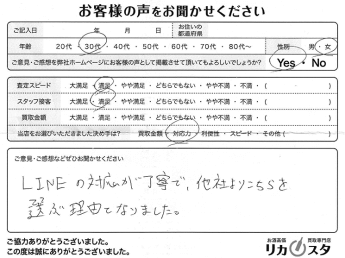 お客様の声をお聞かせください
ご記入日 年 月 日 お住いの都道府県
年齢 20代・30代・40代・50代・60代・70代・80代〜 性別 男・女
ご意見・ご感想を弊社ホームページにお客様の声として掲載させて頂いてもよろしいでしょうか？ Yes・No
査定スピード 大満足・満足・やや満足・どちらでもない・やや不満・不満・( )
スタッフ接客 大満足・満足・やや満足・どちらでもない・やや不満・不満・( )
買取金額 大満足・満足・やや満足・どちらでもない・やや不満・不満・( )
当店をお選びいただきました決め手は？ 買取金額・対応力・利便性・スピード・その他( )
ご意見・ご感想などぜひお聞かせください
LINEの対応が丁寧で、他社よりこちらを
選ぶ理由となりました。
ご協力ありがとうございました。
この度は誠にありがとうございました。
お酒高価買取専門店
リカスタ